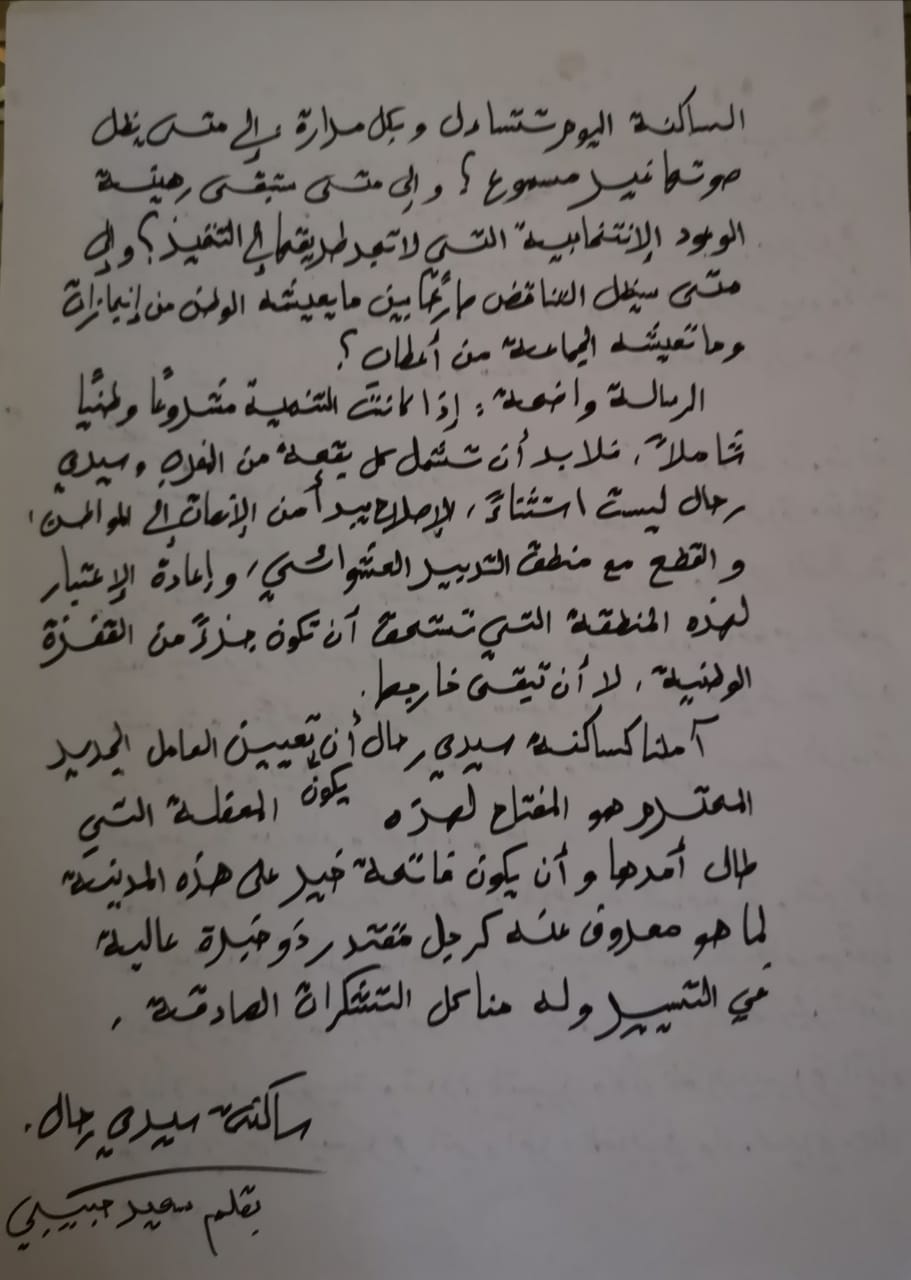 الساكنة اليوم تتساءل وبكل مرارة إلى متى يظل
صوتها غير مسموع؟ وإلى متى ستبقى رهينة
الوعود الإنتخابية التي لا تجد طريقها إلى التنفيذ؟ وإلى
متى سيظل التناقض صارخًا بين ما يعيشه الوطن من إنجازات
وما تعيشه الجماعة من أعطاب؟
الرسالة واضحة: إذا كانت التنمية مشروعًا وطنيًا
شاملاً، فلابد أن تشمل كل بقعة من المغرب، وسيدي
رحال ليست استثناءً، الإصلاح يبدأ من الإنصات إلى المواطن،
والقطع مع منطق التدبير العشوائي، وإعادة الإعتبار
لهذه المنطقة التي تستحق أن تكون جزءً من القفزة
الوطنية، لا أن تبقى خارجها.
أملنا كساكنة سيدي رحال أن تعيين العامل الجديد
المحترم هو المفتاح لهذه يكون المعضلة التي
طال أمدها وأن يكون فاتحة خير على هذه المدينة
لما هو معروف عنه كرجل مقتدر ذو خبرة عالية
في التسيير وله منا كل التشكرات الصادقة.
ساكنة سيدي رحال.
بقلم سعيد حبيبي